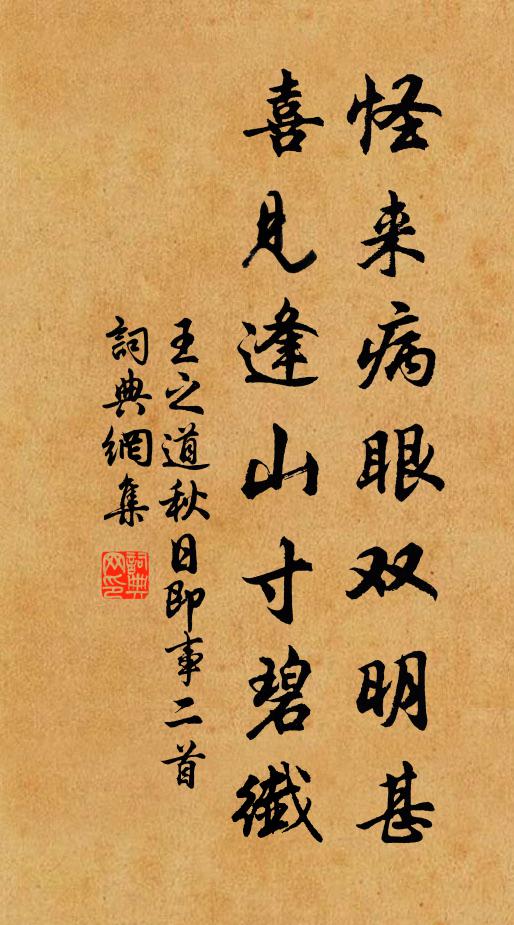 怪来病眼双明甚
喜见逢山寸碧纖
王之道秋日即事二首
詞典網集
詞典网印